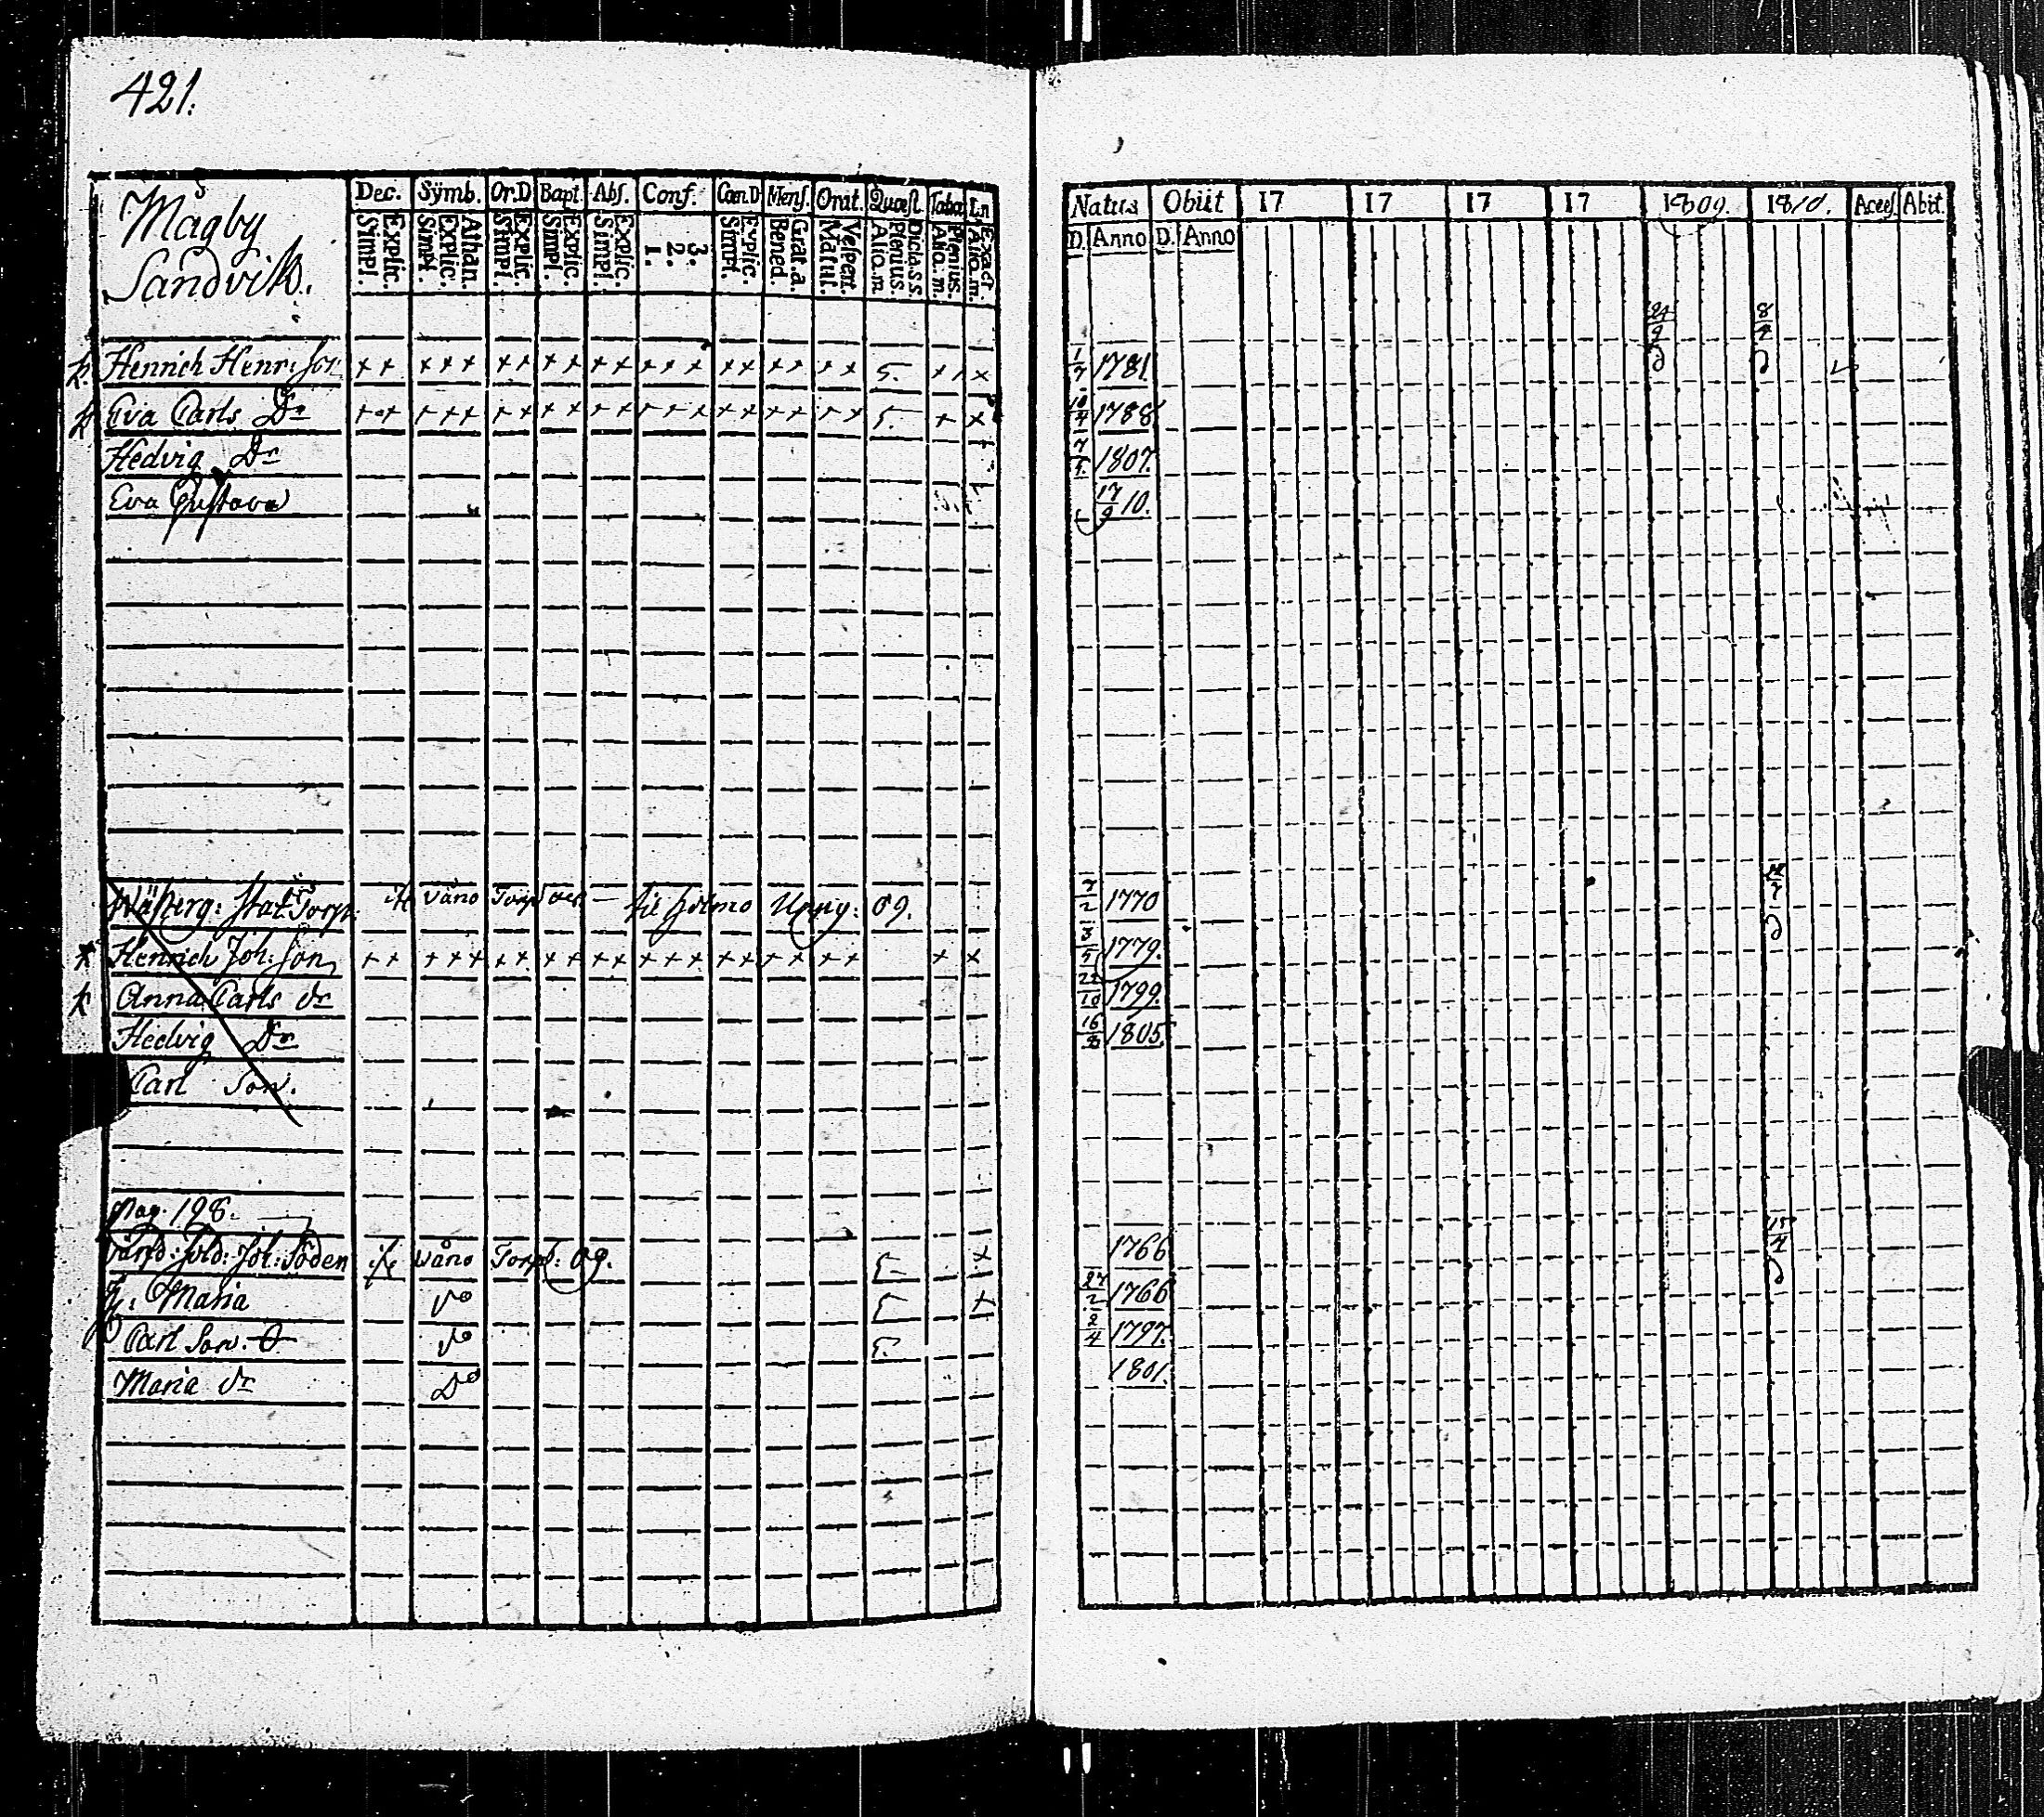 421.
Mågby
Sandvik.
Dec. Symb. Or.D Bapt. Abs. Conf. Cœn.D Mens. Orat. Quæst. Taba Ln
Simpl. Explic. Simpl. Explic. Athan. Simpl. Explic. Simpl. Explic. Simpl. Explic. 1. 2. 3. Simpl. Explic. Bened. Grat.a. Matut. Vespert. Alio.m. Plenius. Dicta s.s. Alio.m. Plenius. Alio.m. Exact.
Natus Obiit 17 17 17 17 1809. 1810. Access. Abit.
D. Anno D. Anno
24/9 8/4
Henrich Henr: Son ++ +++ ++ ++ ++ +++ ++ ++ ++ 5. ++ + 1/7 1781.
Eva Carls Dr ++ +++ ++ ++ ++ +++ ++ ++ ++ 5. + + 10/4 1788.
Hedvig Dr 7/5 1807.
Eva Gustava 17/9 10.
Torp: Wåno Torp til Holmo 09. 7/2 1770
Henrich Joh: Son ++ +++ ++ ++ ++ +++ ++ ++ ++ + + 3/5 1779.
Anna Carls dr 22/10 1799.
Hedvig Dr 16/8 1805.
Carl Son.
Pag. 198.
Sold: Joh: Söden Wåno Torp: 09. + 1766 15/4
H: Maria Do + 27/2 1766
Carl Son. Do 2/4 1797.
Maria dr Do 1801.